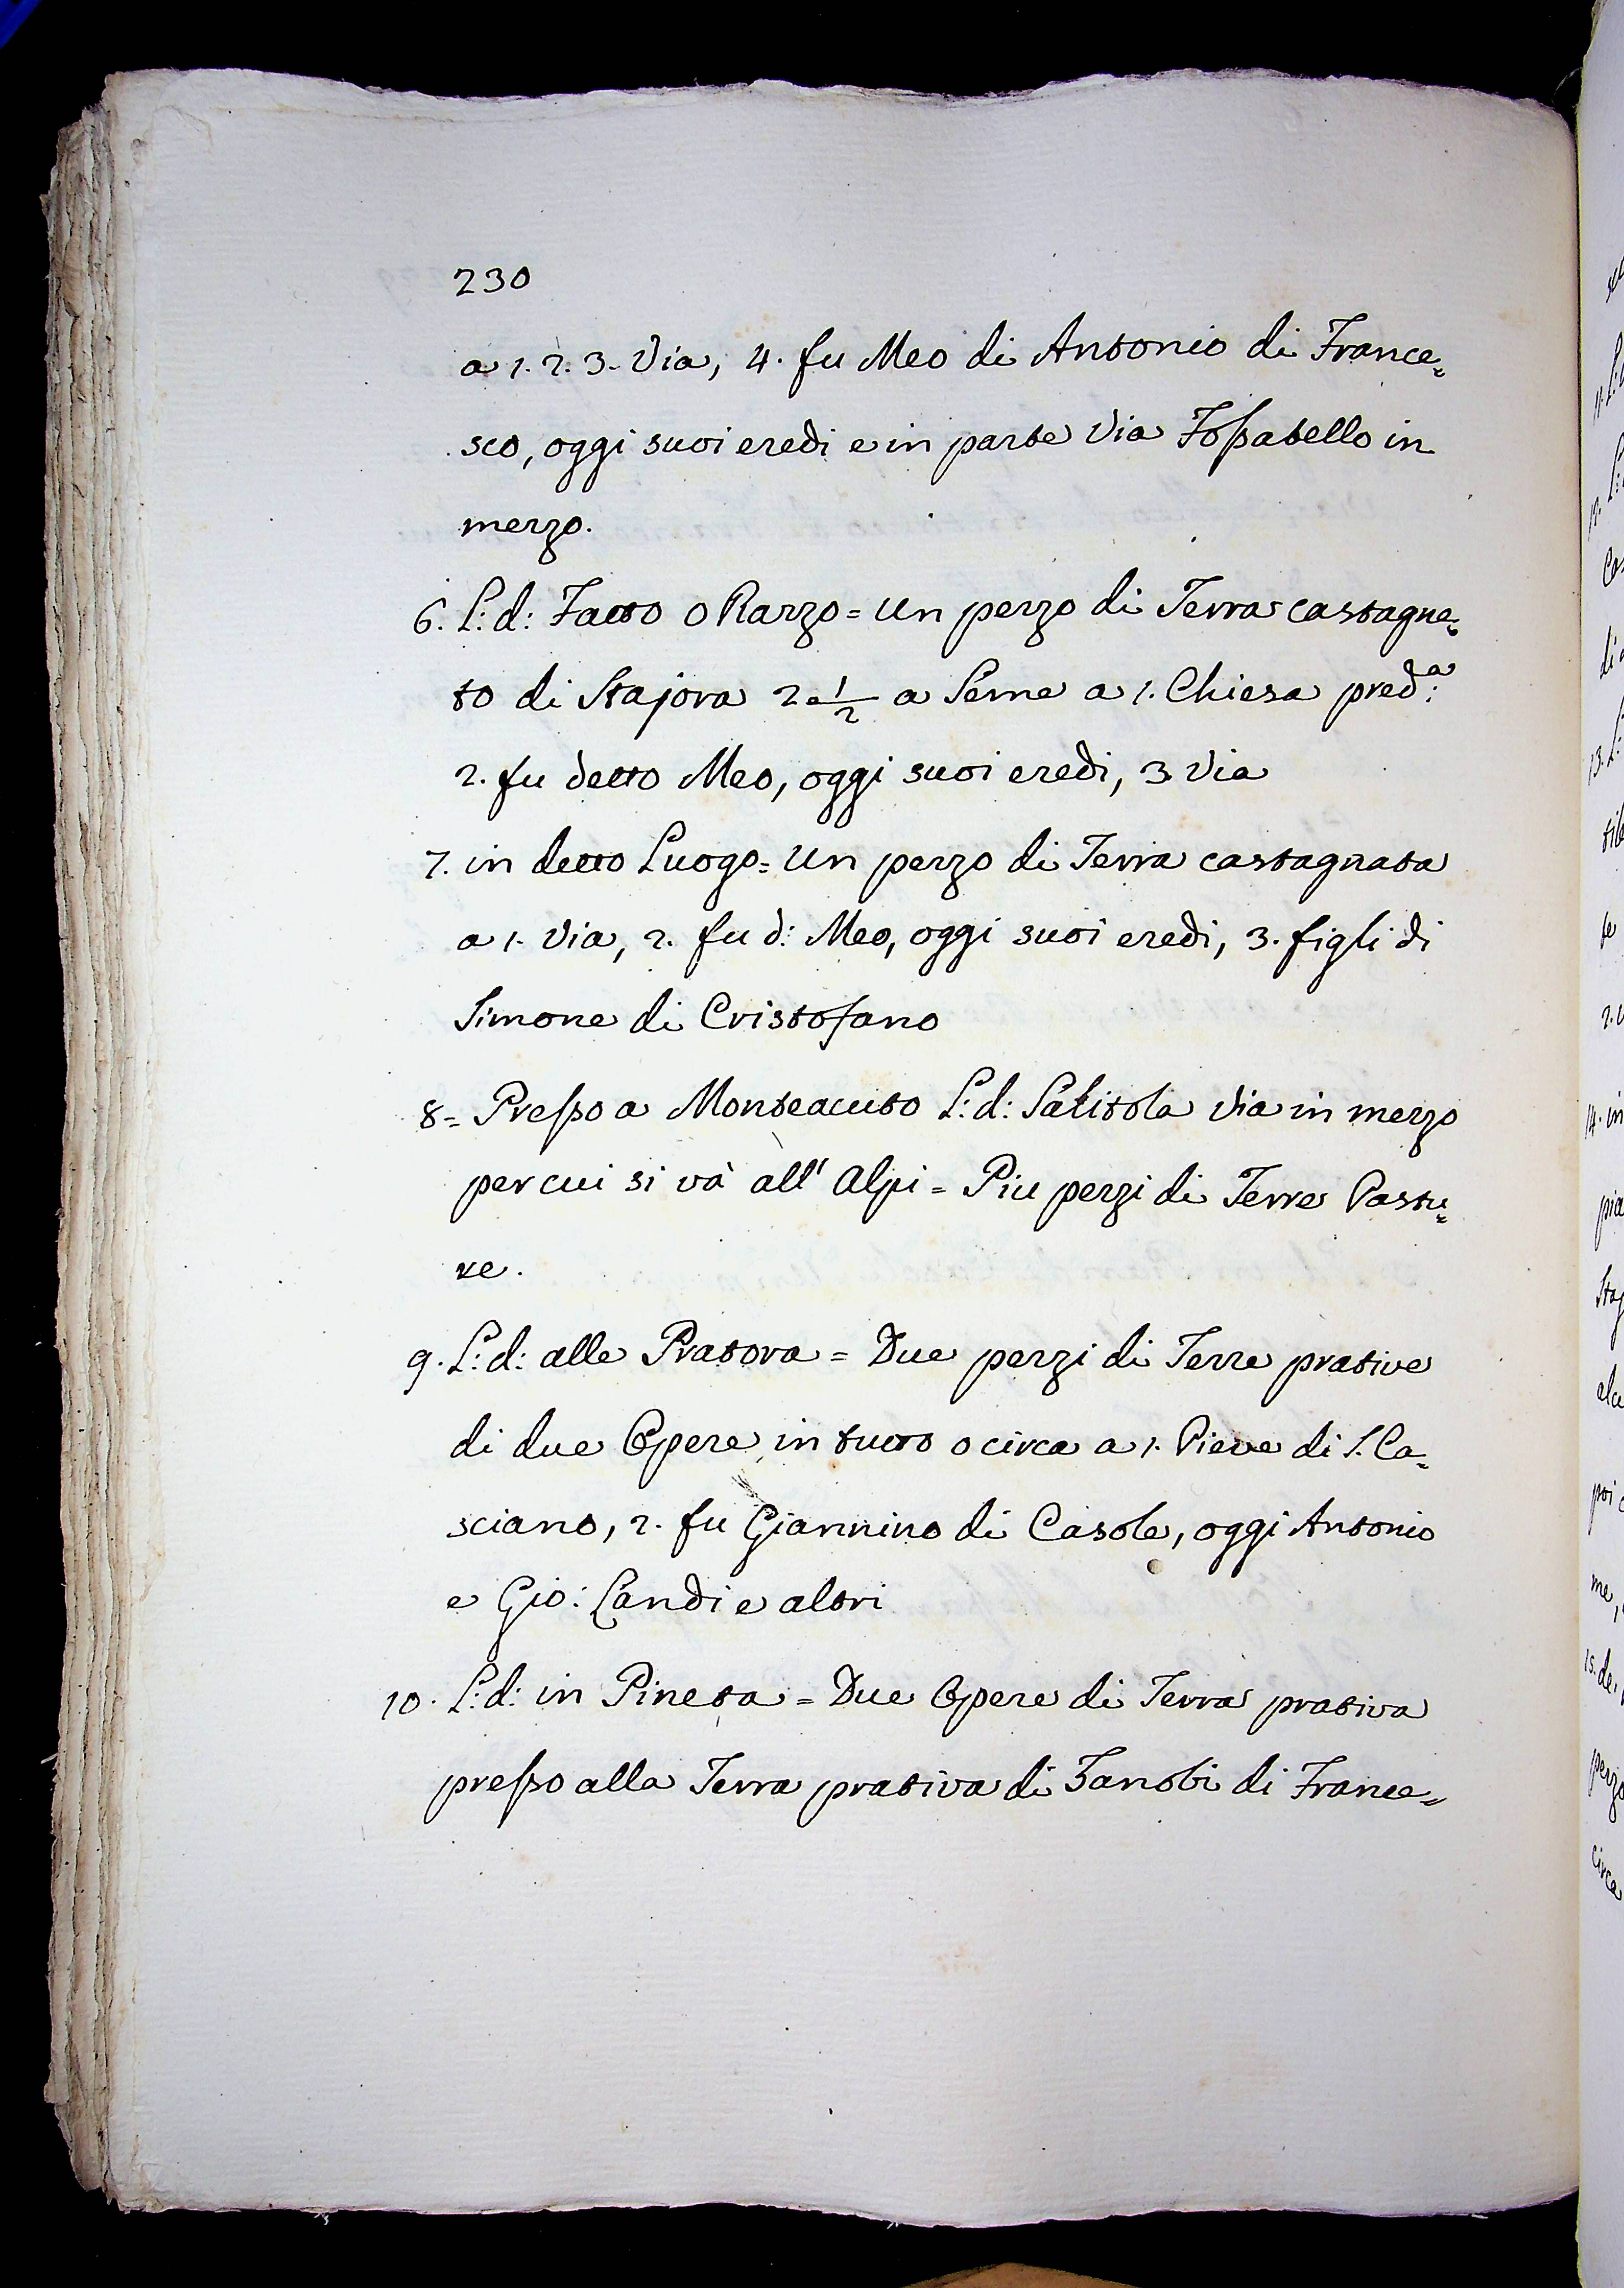 230
a 1. 2. 3. Via, 4. fu Meo di Antonio di France=
sco, oggi suoi eredi e in parte Via Fossatello in
mezzo.
6. L: d: Fatto o Razzo = Un pezzo di Terra castagne=
to di Stajora 2 1/2 a Seme a 1. Chiesa pred:a
2. fu detto Meo, oggi suoi eredi, 3. Via
7. in detto Luogo = Un pezzo di Terra castagnata
a 1. Via, 2. fu d: Meo, oggi suoi eredi, 3. figli di
Simone di Cristofano
8 = Presso a Monteacuto L: d: Salitola Via in mezzo
per cui si và all' Alpi = Piu pezzi di Terre Pastu=
re.
9. L: d: alle Pratora = Due pezzi di Terre prative
di due Opere in tutto o circa a 1. Pieve di S. Ca=
sciano, 2. fu Giannino di Casole, oggi Antonio
e Gio: Landi e altri
10. L: d: in Pineta = Due Opere di Terra prativa
presso alla Terra prativa di Zanobi di France=